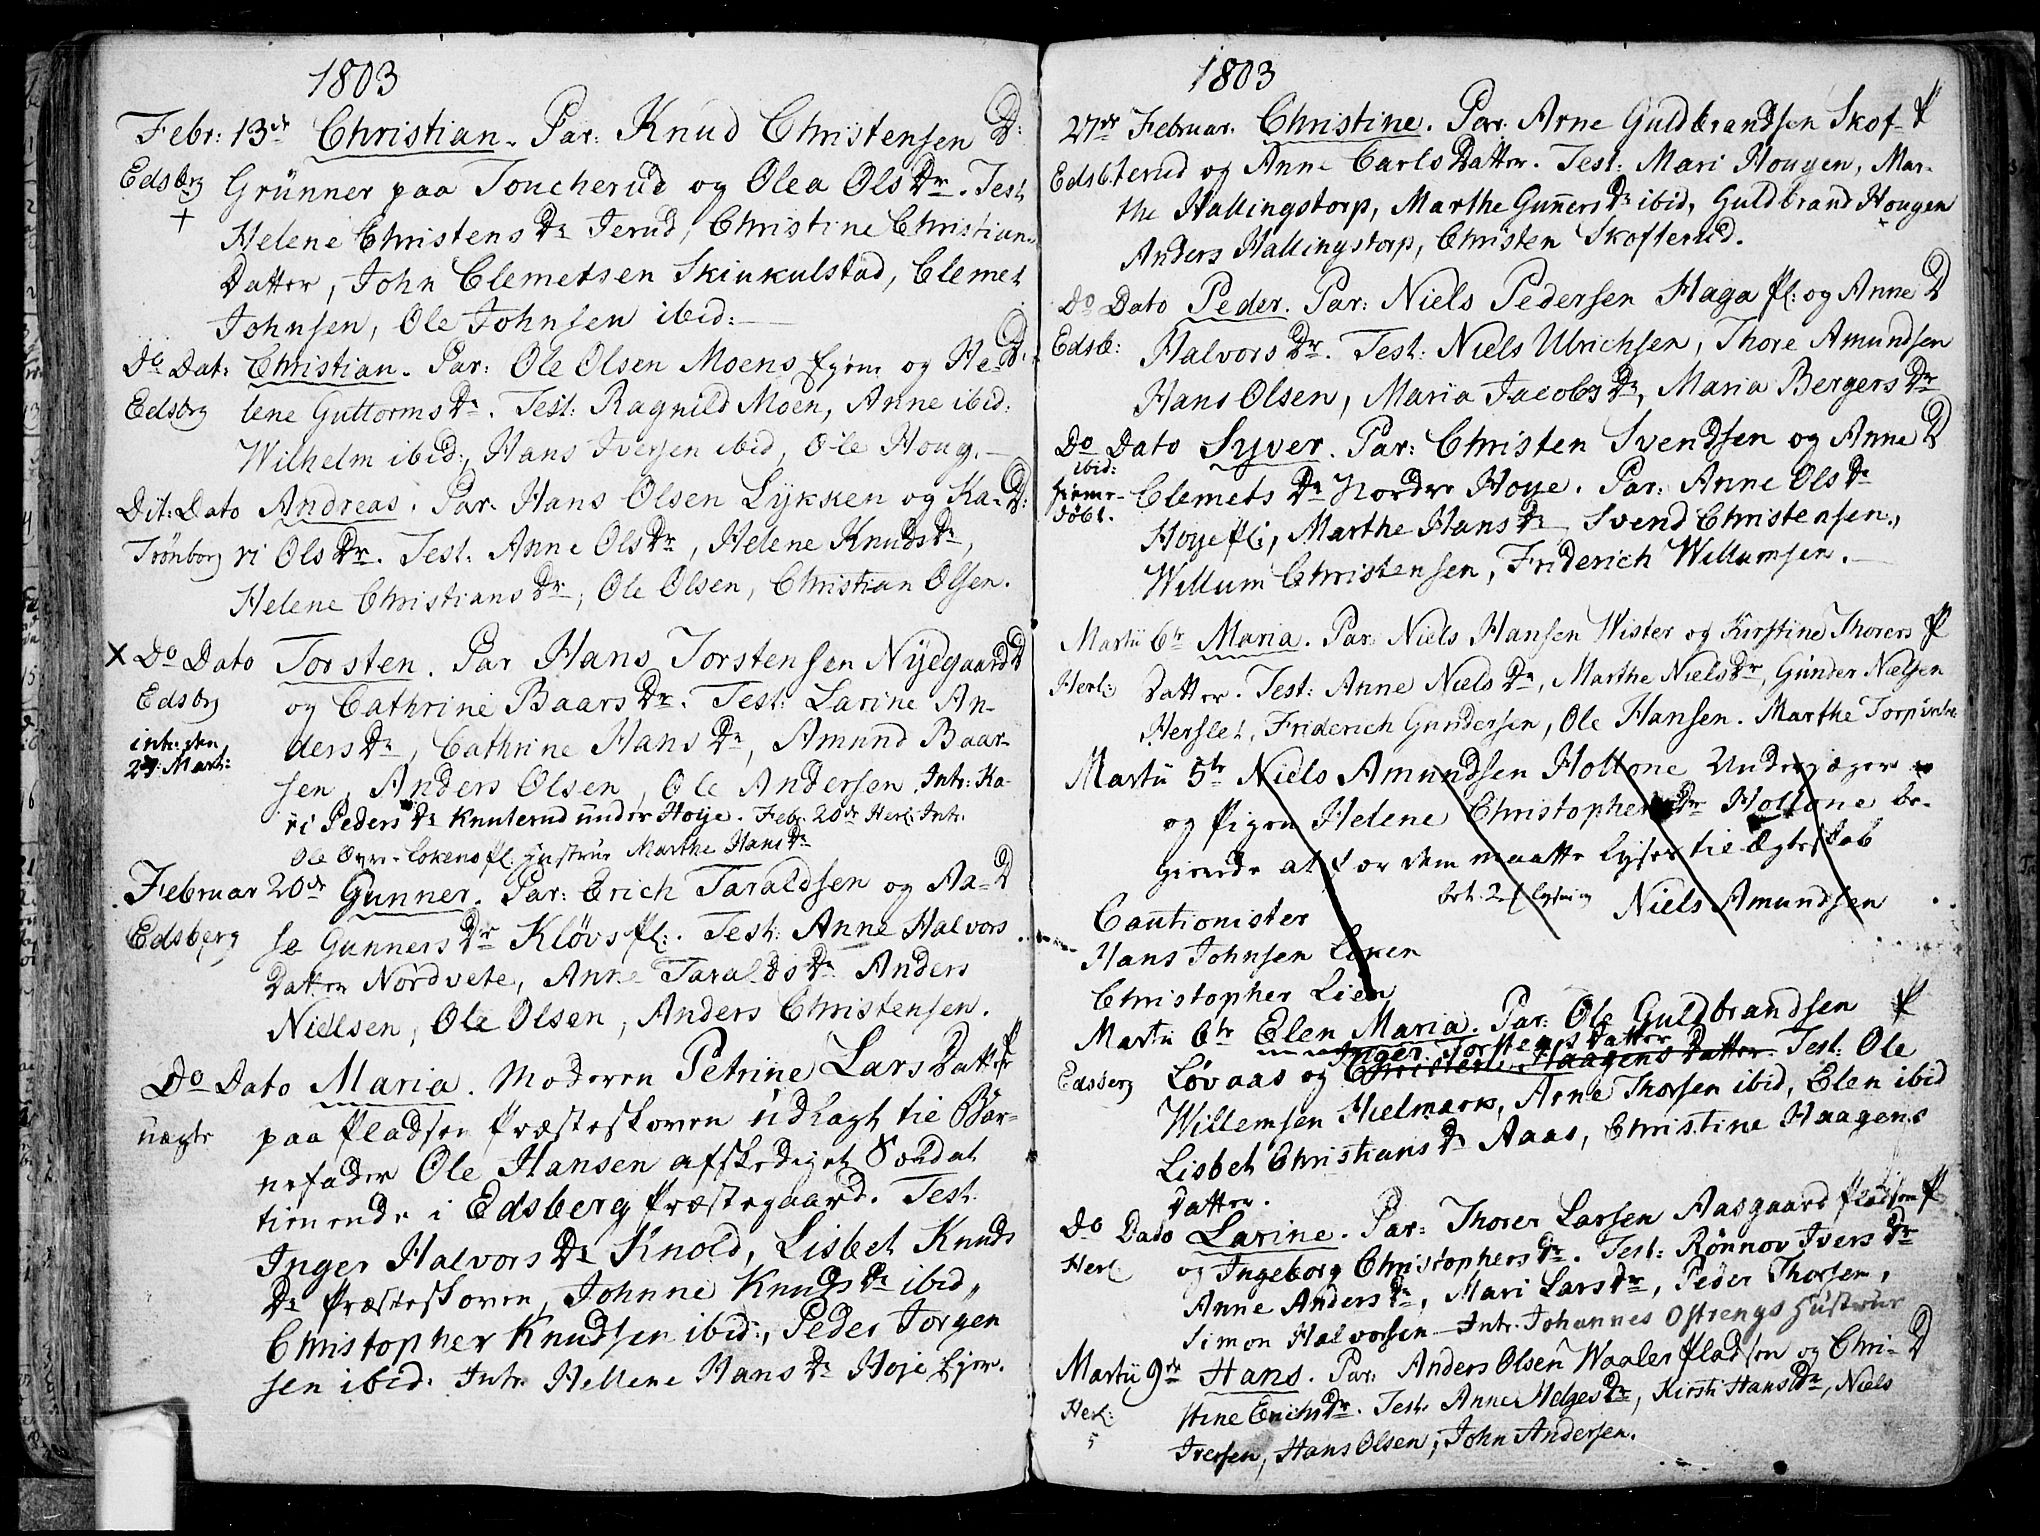 1803
Febr: 13de Christian. Par: Knud Christensen D:
Edsbrg Grünner paa Toucherud og Olea OlsDr. Test
+ Helene ChristensDr Terud, Christine Christians
Datter, John Clemetsen Skiukulstad, Clemet
Johnsen, Ole Johnsen ibid:
Do Dat: Christian. Par: Ole Olsen Moens og He- D:
Edsbrg lene GuttormsDr. Test: Ragnild Moen, Anne ibid:
Wilhelm ibid:, Hans Iversen ibid, Ole Houg.
Dit: Dato Andreas. Par. Hans Olsen Lykken og Ka- D:
Trönborg ri OlsDr. Test: Anne OlsDr, Helene KnudsDr,
Helene ChristiansDr, Ole Olsen, Christian Olsen.
X Do Dato Torsten. Par Hans Torstensen Nyegaard D
Edsbrg og Cathrine BaarsDr. Test: Larine An-
intr: den dersDr, Cathrine HansDr, Amund Baar-
27 Mart: sen, Anders Olsen, Ole Andersen. Intr: Ka-
ri PedersDr Knuterud under Hoye. Febr. 20de Herl: Intr.
Ole Lokens pl: Hustrue Marthe HansDr
Februar 20de Gunner. Par: Erich Taraldsen og Aa- D
Edsberg se GunnersDr Kløvs pl:. Test: Anne Halvors
Datter Nordvete, Anne TaraldsDr Anders
Nielsen, Ole Olsen, Anders Christensen.
Do Dato Maria. Moderen Petrine LarsDatter P
uægte paa Pladsen Præsteskoven udlagt til Bar-
nefader Ole Hansen afskediget Soldat
tienende i Edsberg Præstegaard. Test.
Inger HalvorsDr Knold, Lisbet Knuds
Dr Præsteskoven, Johnne KnudsDr ibid,
Christopher Knudsen ibid:, Peder Jorgen
sen ibid. Intr. Hellene HansDr Hoje Ejer.
1803
27de Februar. Christine. Par: Arne Guldbrandsen Skof- P
Edsb. terud og Anne CarlsDatter. Test: Mari Hougen, Mar-
the Hallingstorp, Marthe GunnersDr ibid, Guldbrand Hougen
Anders Hallingstorp, Christen Skofterud.
Do Dato Peder. Par: Niels Pedersen Haga pl: og Anne D
Edsb: HalvorsDr. Test: Niels Ulrichsen, Thore Amundsen
Hans Olsen, Maria JacobsDr, Maria BergersDr
Do Dato Syver. Par: Christen Svendsen og Anne D
ibid:
hieme- ClemetsDr Nordre Hoye. Par: Anne OlsDr
döbt. Hoye pl:, Marthe HansDr Svend Christensen,
Willum Christensen, Friderich Willumsen.
Martii 6te Maria. Par: Niels Hansen Wister og Kirstine Thorers P
Herl: Datter. Test: Anne NielsDr, Marthe NielsDr, Gunder Nielsen
Herslet, Friderich Gundersen, Ole Hansen. Marthe Torp intr:
Martii 5te Niels Amundsen Holtone Underjæger
og Pigen Helene ChristophersDr Holtone be-
gierede at for dem maatte lyses til Ægteskab
bet. 2 lysning Niels Amundsen
Cautionister
Hans Johnsen Loken
Christopher Lien
Martii 6te Elen Maria. Par: Ole Guldbrandsen P
Inger TorstensDatter
Edsberg Løvaas og Christen HaagensDatter. Test: Ole
Willemsen Hielmark, Arne Thorsen ibid, Elen ibid
Lisbet ChristiansDr Aaas, Christine Haagens
Datter.
Do Dato Larine. Par: Thorer Larsen Aasgaard pladsen P
Herl: og Ingeborg ChristophersDr. Test: Rønnov IversDr
Anne AndersDr, Mari LarsDr, Peder Thorsen,
Simon Halvorsen - Intr. Johannes Ostrengs Hustrue
Martii 9de Hans. Par: Anders Olsen Waaler pladsen og Chri- D
Herl: stine ErichsDr. Test. Anne HelgesDr, Kirsti HansDr, Niels
5 Iversen, Hans Olsen, John Andersen.